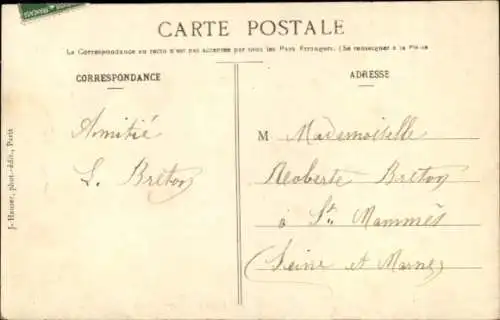 CARTE POSTALE
La Correspondance au recto n'est pas acceptée par tous les Pays Étrangers. (Se renseigner à la Poste
CORRESPONDANCE
ADRESSE
Amitié
S. Breton
M Mademoiselle
Breton
à St Mammès
(Seine et Marne)
J. Hauser, phot.-édit., Paris